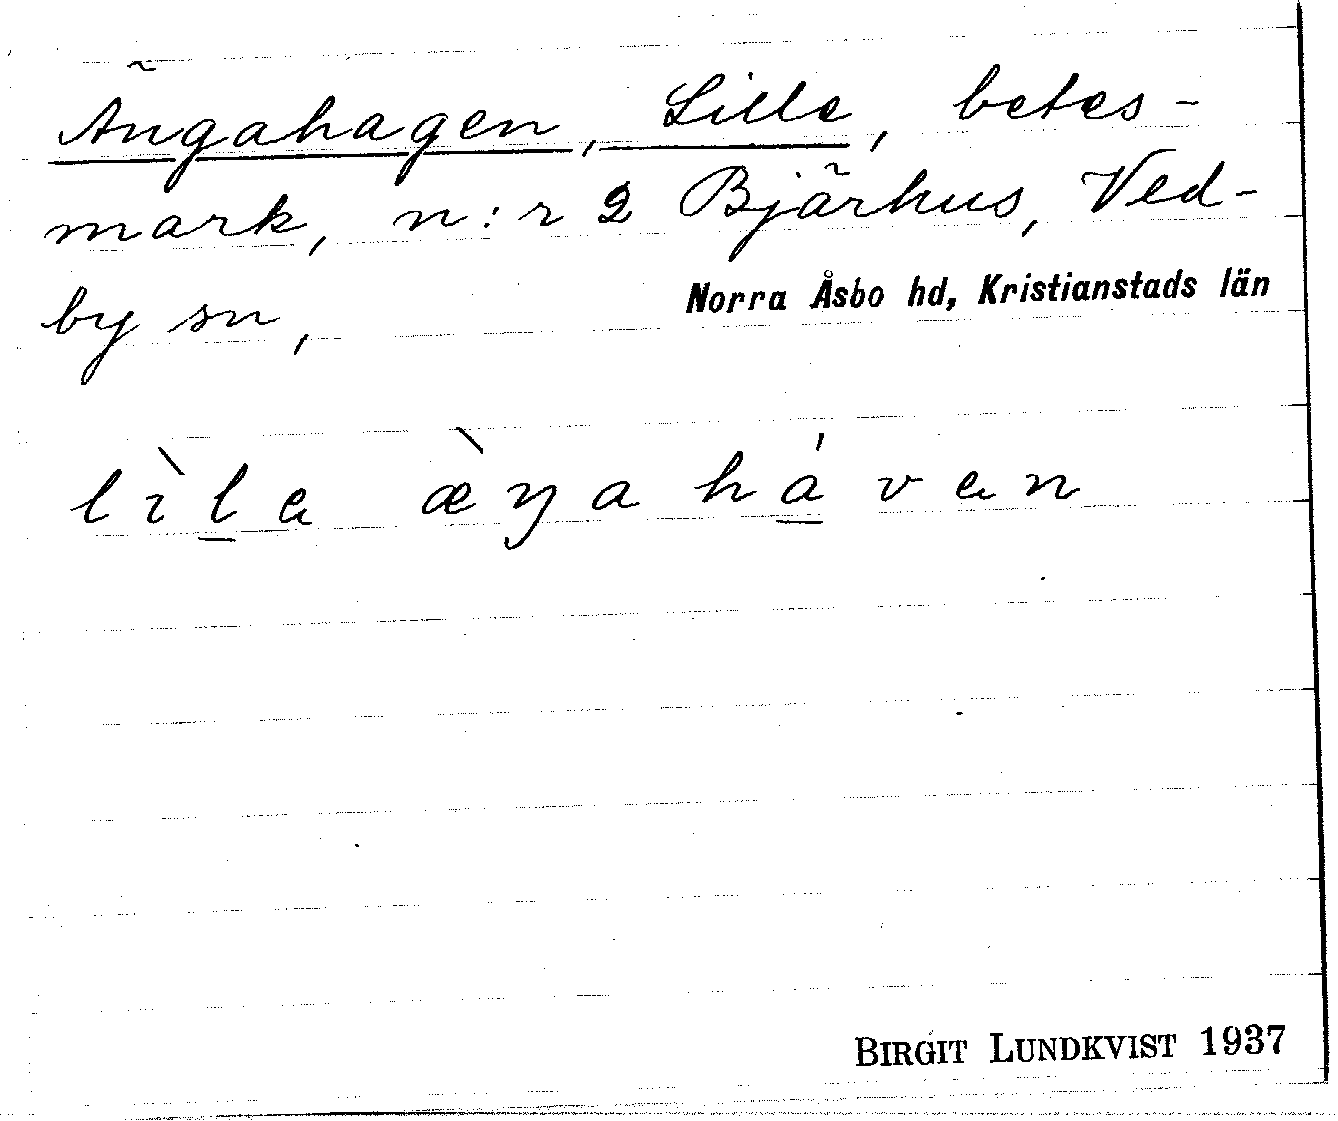 Ängahagen, Lilla, betes-
mark, n:r 2 Bjärhus, Ved-
by sn,
Norra Åsbo hd, Kristianstads län
lìla æ̀ŋa hávan
BIRGIT LUNDKVIST 1937